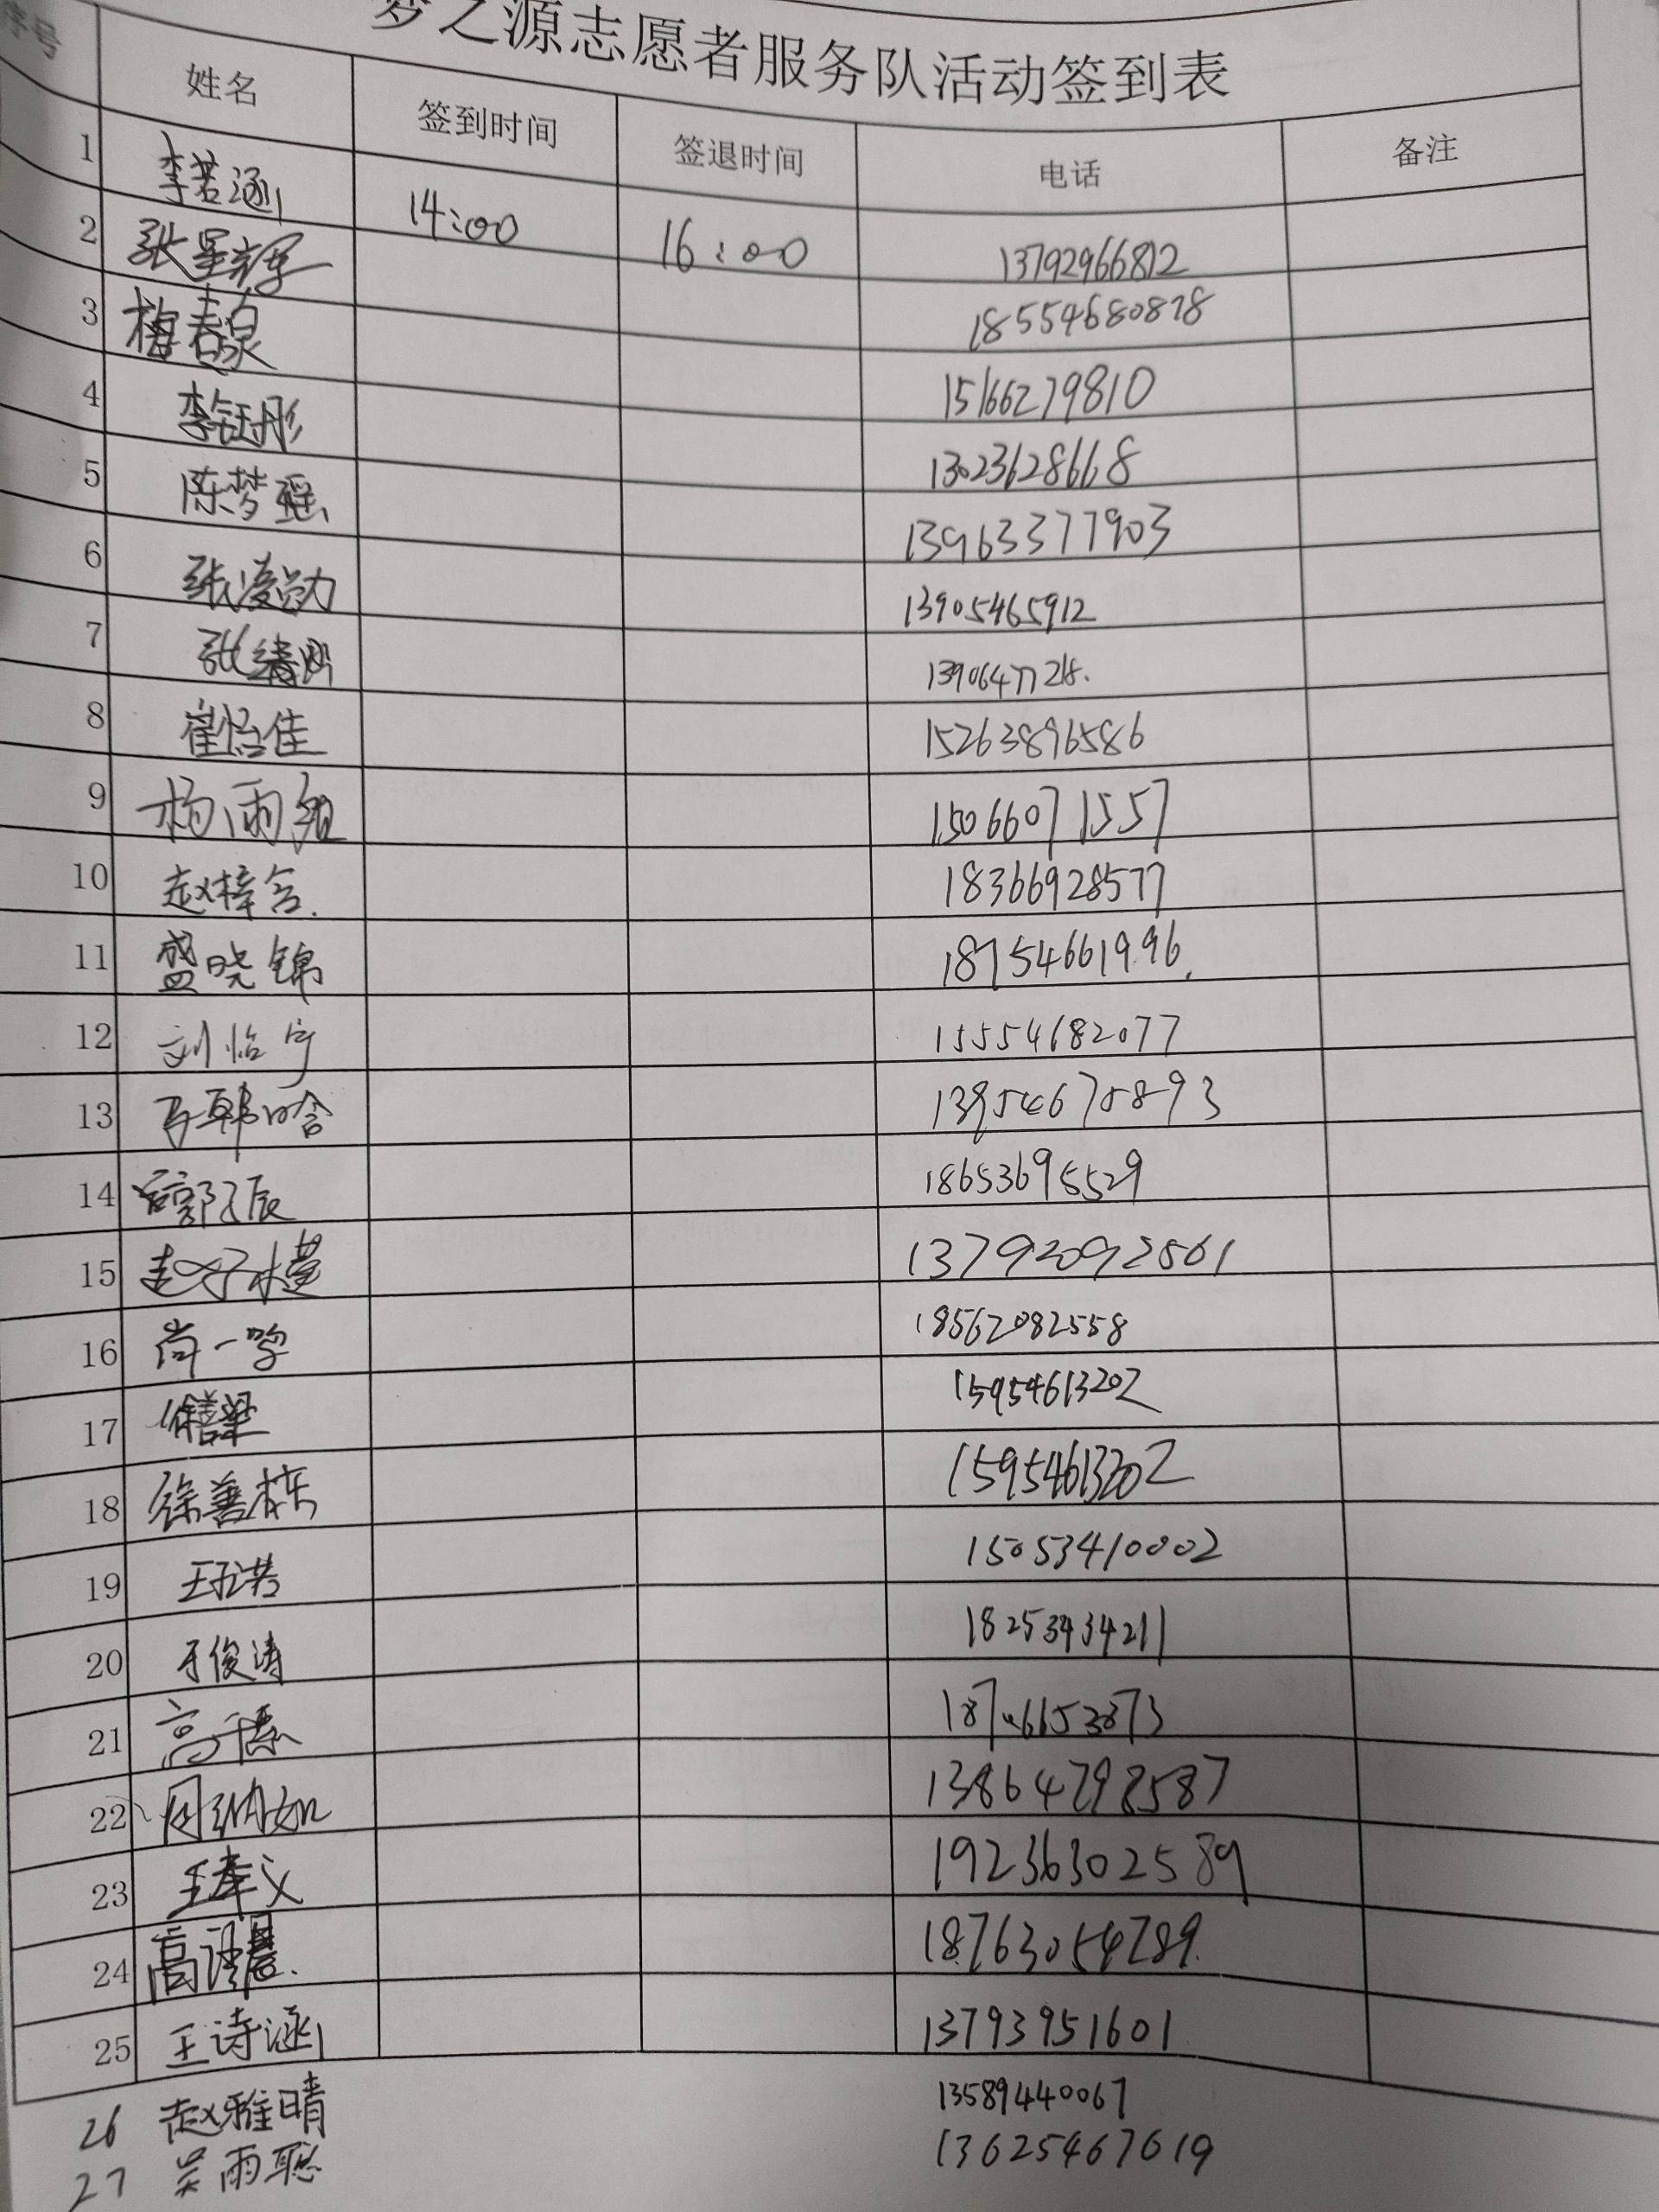 梦之源志愿者服务队活动签到表
序号 姓名 签到时间 签退时间 电话 备注
1 李若涵 14:00 16:00 13792966812
2 张星辉 18554680878
3 梅春泉 15166279810
4 李钰彤 13023628668
5 陈梦瑶 13963377903
6 张凌勋 13905465912
7 张绪刚
8 崔怡佳 15263896586
9 杨雨 15066071557
10 赵梓含 18366928577
11 盛晓锦 18754661996
12 刘怡宁 15554682077
13 韩晗 13954675893
14 郭 辰 18653695529
15 赵子槿 13792092561
16 尚一鸣 18562082558
17 徐善梁 15954613202
18 徐善栋 15954613202
19 王 15053410002
20 于俊涛 18253434211
21 高千惠 18706653873
22 周纳如 13864798587
23 王孝义 19236302589
24 高 晨 18763054789
25 王诗涵 13793951601
26 赵雅晴 13589440067
27 吴雨聪 13625467619